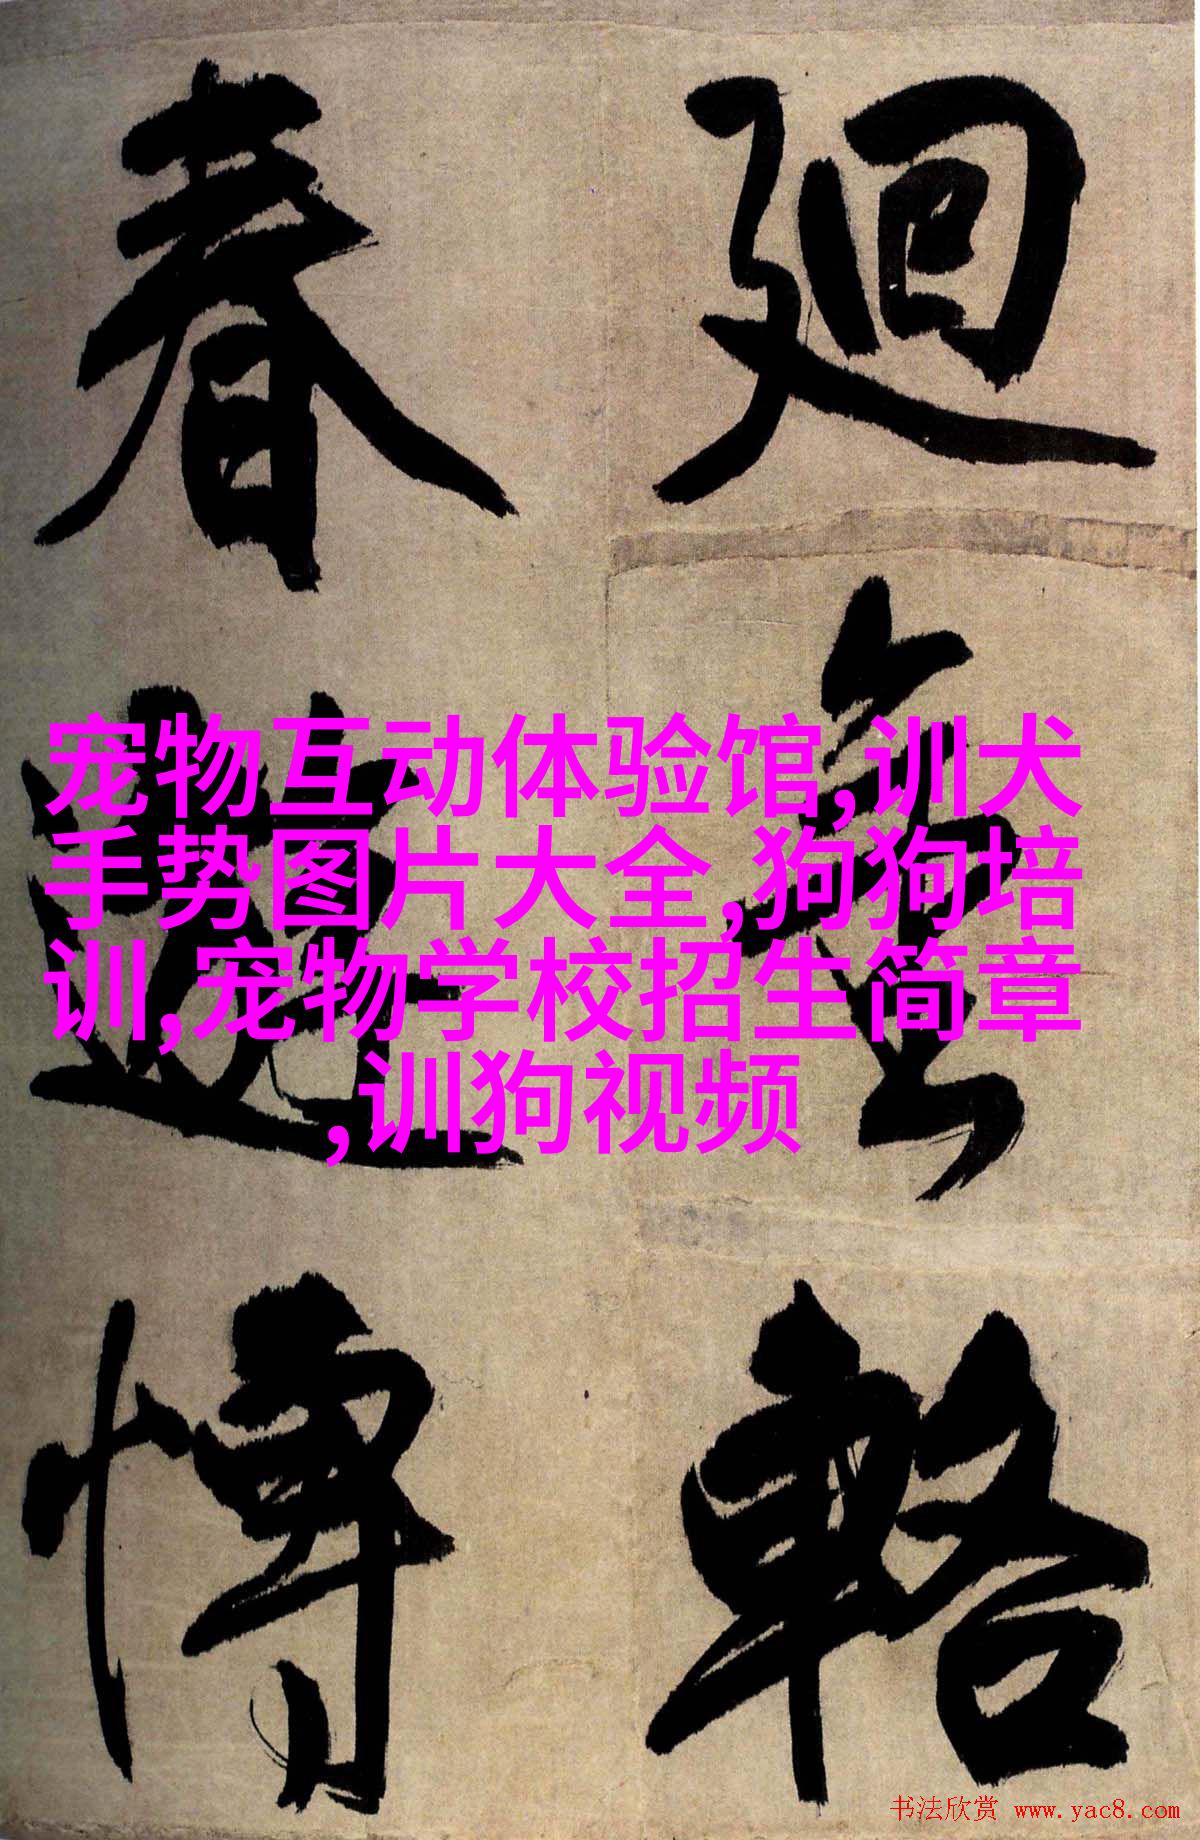 廻
無
輅
春
遊
愽
宠物互动体验馆,训犬
手势图片大全,狗狗培
训,宠物学校招生简章
,训狗视频
书法欣赏 www.yac8.com